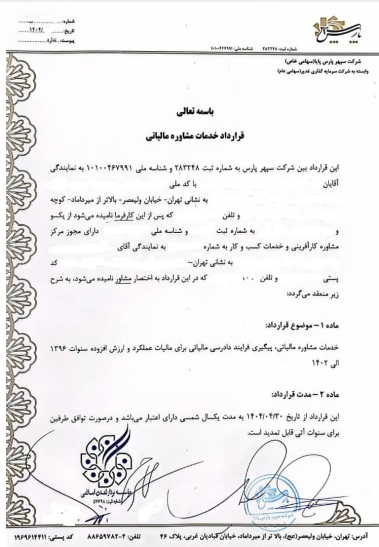 شماره:
تاریخ: ۱۴۰۴/
پیوست: ندارد
شماره ثبت: ۲۸۳۲۴۸
شناسه ملی: ۱۰۱۰۰۴۶۷۹۹۱
شرکت سپهر پارس پایا(سهامی خاص)
وابسته به شرکت سرمایه گذاری غدیر(سهامی عام)
باسمه تعالی
قرارداد خدمات مشاوره مالیاتی
این قرارداد بین شرکت سپهر پارس به شماره ثبت ۲۸۳۲۴۸ و شناسه ملی ۱۰۱۰۰۴۶۷۹۹۱ به نمایندگی
آقایان با کد ملی
به نشانی تهران- خیابان ولیعصر- بالاتر از میرداماد- کوچه
و تلفن که پس از این کارفرما نامیده می‌شود از یکسو
و به شماره ثبت و شناسه ملی دارای مجوز مرکز
مشاوره کارآفرینی و خدمات کسب و کار به شماره به نمایندگی آقای
به نشانی تهران- کد
پستی و تلفن ۰۰ که در این قرارداد به اختصار مشاور نامیده می‌شود، به شرح
زیر منعقد می‌گردد:
ماده ۱- موضوع قرارداد:
خدمات مشاوره مالیاتی، پیگیری فرایند دادرسی مالیاتی برای مالیات عملکرد و ارزش افزوده سنوات ۱۳۹۶
الی ۱۴۰۲
ماده ۲- مدت قرارداد:
این قرارداد از تاریخ ۱۴۰۴/۰۴/۳۰ به مدت یکسال شمسی دارای اعتبار می‌باشد و درصورت توافق طرفین
برای سنوات آتی قابل تمدید است.
آدرس: تهران، خیابان ولیعصر(عج)، بالا تر از میرداماد، خیابان قبادیان غربی، پلاک ۴۶
تلفن: ۴-۸۸۶۵۹۷۸۲
کد پستی: ۱۹۶۹۶۱۴۴۱۱